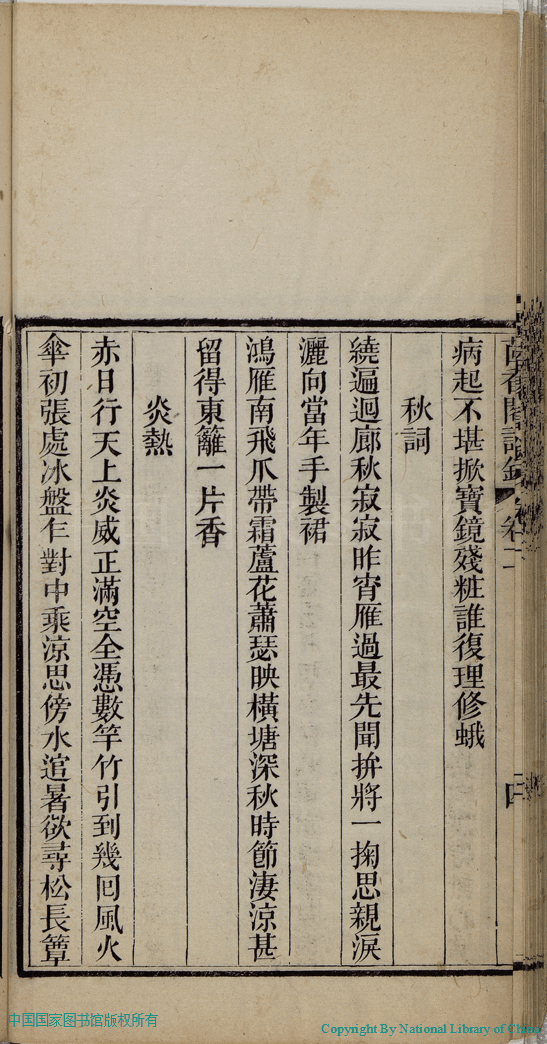 病起不堪掀寶鏡殘粧誰復理修蛾
秋詞
繞遍迴廊秋寂寂昨宵雁過最先聞拚將一掬思親淚
灑向當年手製裙
鴻雁南飛爪帶霜蘆花蕭瑟映橫塘深秋時節淒涼甚
留得東籬一片香
炎熱
赤日行天上炎威正滿空全憑數竿竹引到幾回風火
傘初張處冰盤乍對中乘涼思傍水逭暑欲尋松長簟
中国国家图书馆版权所有
Copyright By National Library of China